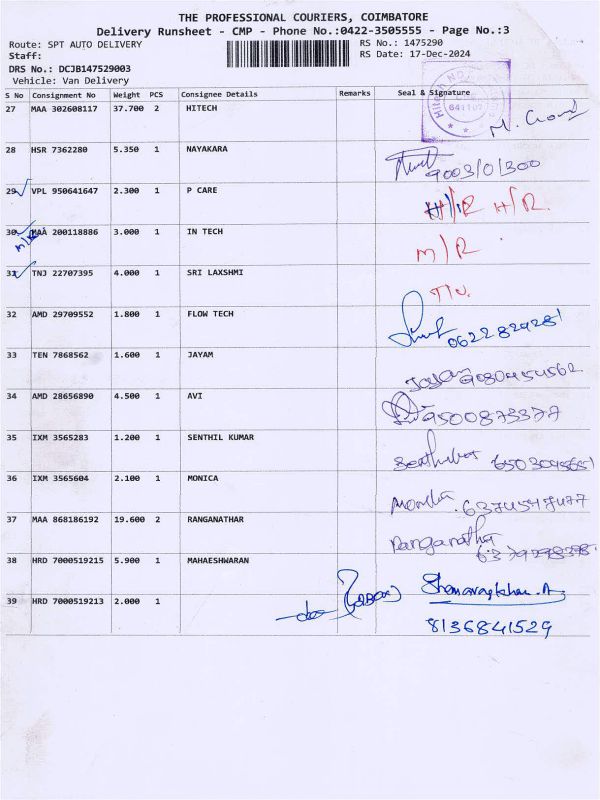 THE PROFESSIONAL COURIERS, COIMBATORE
Delivery Runsheet - CMP - Phone No.:0422-3505555 - Page No.:3
Route: SPT AUTO DELIVERY RS No.: 1475290
Staff: RS Date: 17-Dec-2024
DRS No.: DCJB147529003
Vehicle: Van Delivery
S No Consignment No Weight PCS Consignee Details Remarks Seal & Signature
27 MAA 302608117 37.700 2 HITECH
28 HSR 7362280 5.350 1 NAYAKARA 9003101300
29 VPL 950641647 2.300 1 P CARE H/R H/R
30 MAA 200118886 3.000 1 IN TECH M/R
M/R
31 TNJ 22707395 4.000 1 SRI LAXSHMI
32 AMD 29709552 1.800 1 FLOW TECH
33 TEN 7868562 1.600 1 JAYAM Jayam 9080454562
34 AMD 28656890 4.500 1 AVI 9500873377
35 IXM 3565283 1.200 1 SENTHIL KUMAR
36 IXM 3565604 2.100 1 MONICA Monika 6374547477
37 MAA 868186192 19.600 2 RANGANATHAR Ranganathar
38 HRD 7000519215 5.900 1 MAHAESHWARAN
39 HRD 7000519213 2.000 1 8136841529